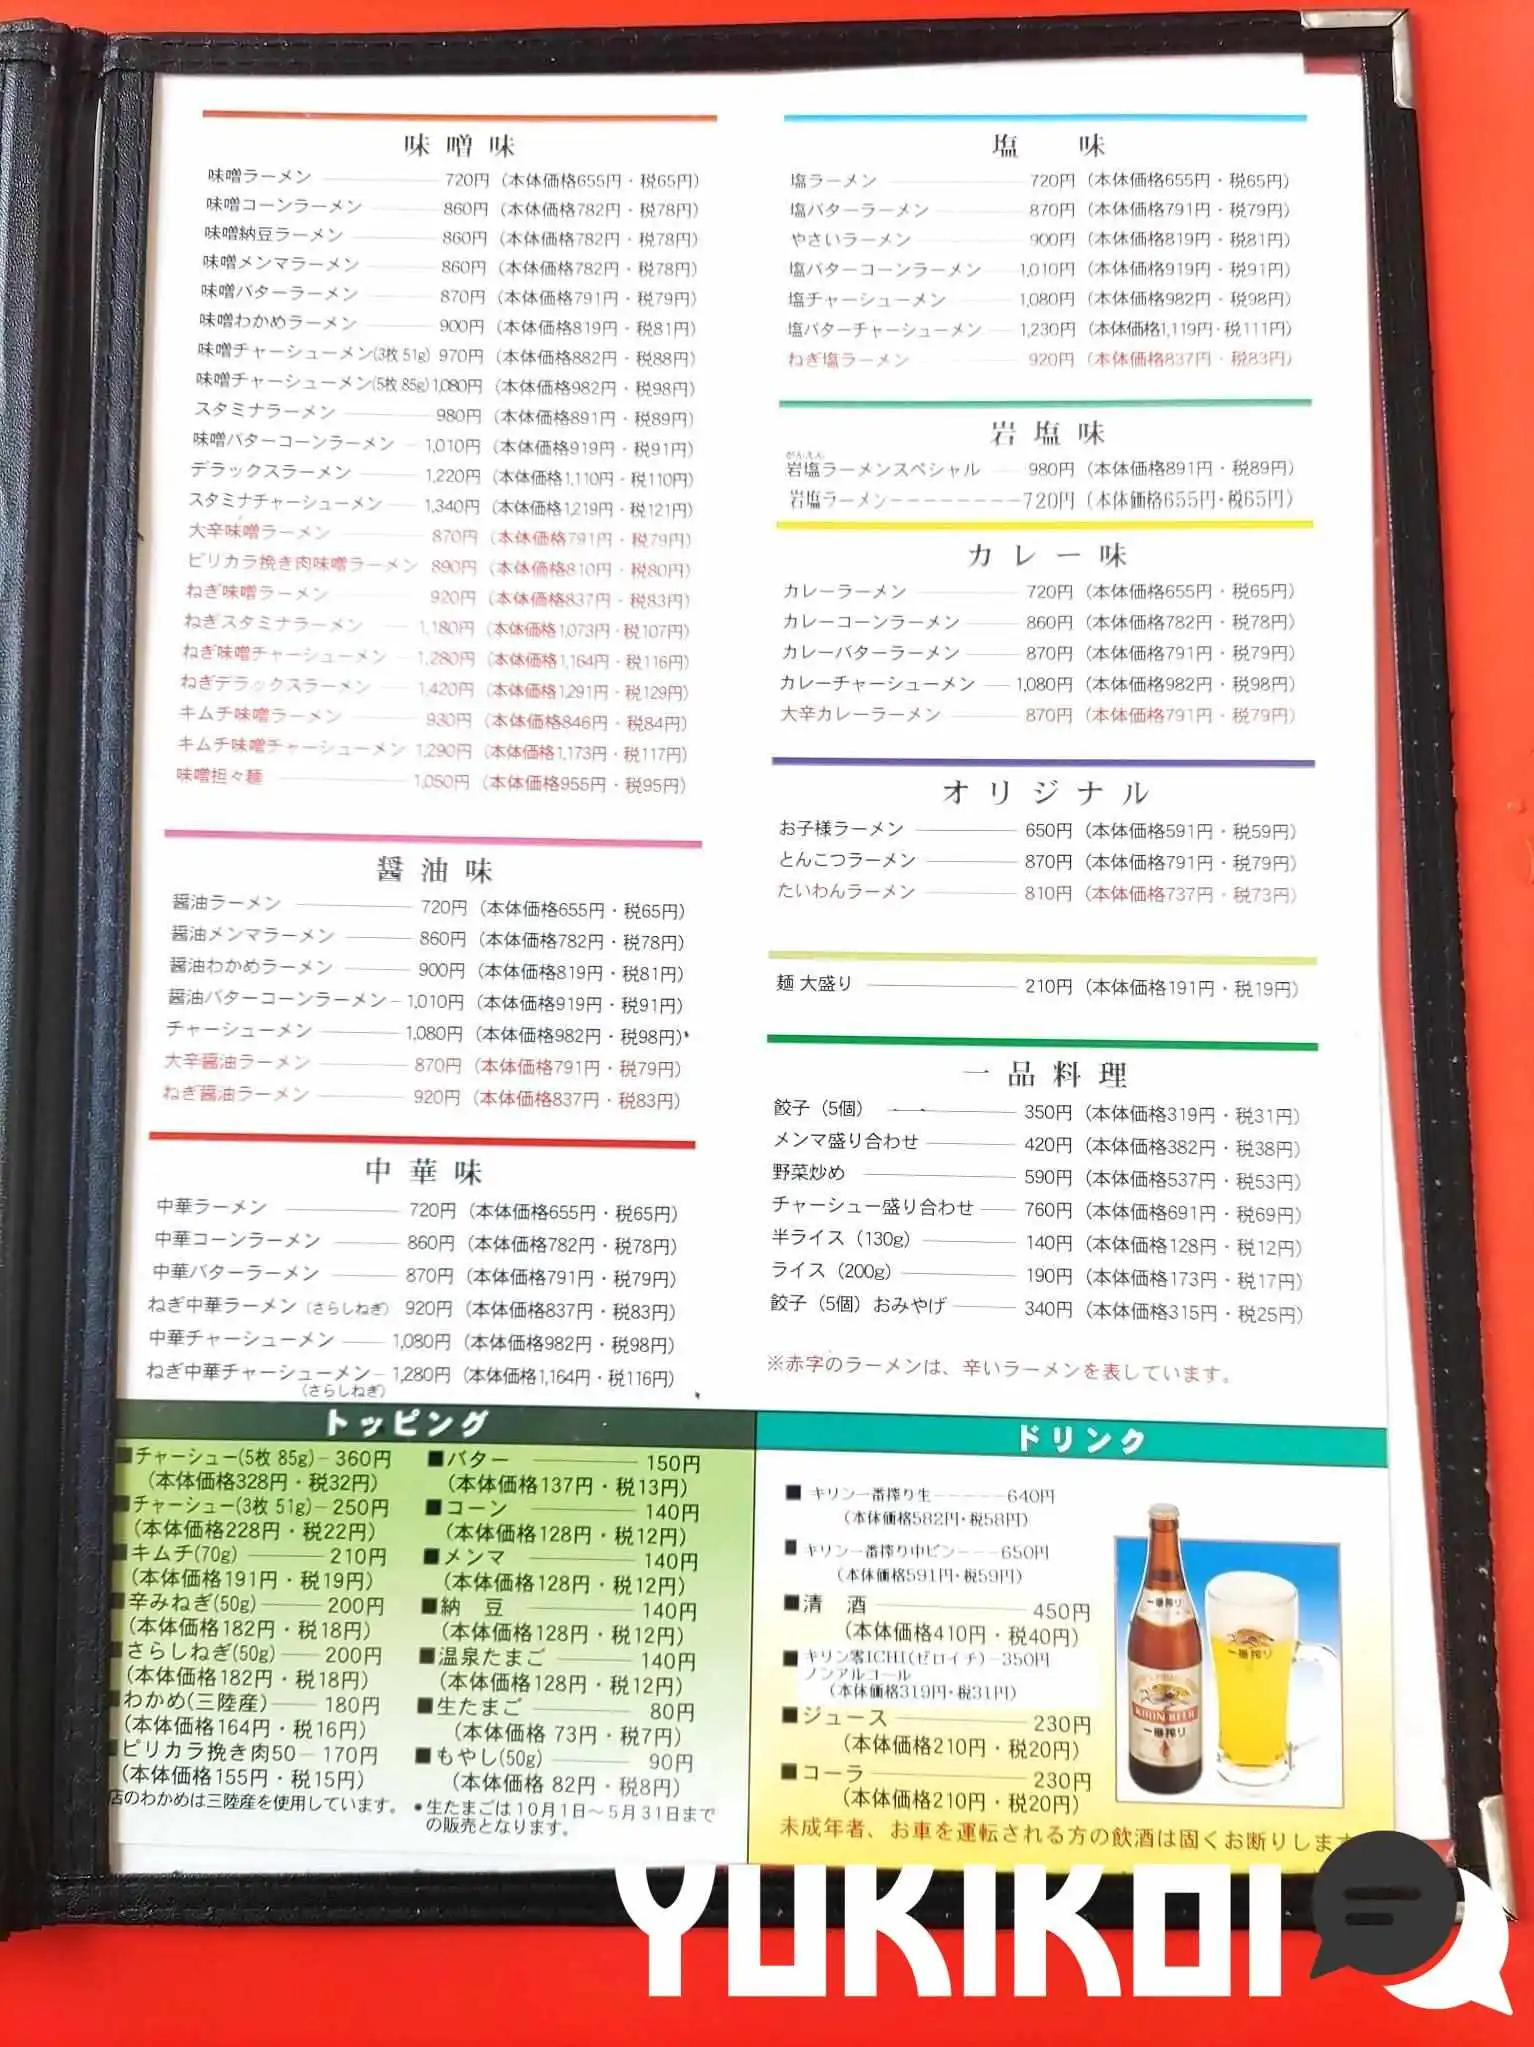 味噌味
味噌ラーメン 720円 (本体価格655円・税65円)
味噌コーンラーメン 860円 (本体価格782円・税78円)
味噌納豆ラーメン 860円 (本体価格782円・税78円)
味噌メンマラーメン 860円 (本体価格782円・税78円)
味噌バターラーメン 870円 (本体価格791円・税79円)
味噌わかめラーメン 900円 (本体価格819円・税81円)
味噌チャーシューメン(3枚 51g) 970円 (本体価格882円・税88円)
味噌チャーシューメン(5枚 85g) 1,080円 (本体価格982円・税98円)
スタミナラーメン 980円 (本体価格891円・税89円)
味噌バターコーンラーメン 1,010円 (本体価格919円・税91円)
デラックスラーメン 1,220円 (本体価格1,110円・税110円)
スタミナチャーシューメン 1,340円 (本体価格1,219円・税121円)
大辛味噌ラーメン 870円 (本体価格791円・税79円)
ピリカラ挽き肉味噌ラーメン 890円 (本体価格810円・税80円)
ねぎ味噌ラーメン 920円 (本体価格837円・税83円)
ねぎスタミナラーメン 1,180円 (本体価格1,073円・税107円)
ねぎ味噌チャーシューメン 1,280円 (本体価格1,164円・税116円)
ねぎデラックスラーメン 1,420円 (本体価格1,291円・税129円)
キムチ味噌ラーメン 930円 (本体価格846円・税84円)
キムチ味噌チャーシューメン 1,290円 (本体価格1,173円・税117円)
味噌担々麺 1,050円 (本体価格955円・税95円)
醤油味
醤油ラーメン 720円 (本体価格655円・税65円)
醤油メンマラーメン 860円 (本体価格782円・税78円)
醤油わかめラーメン 900円 (本体価格819円・税81円)
醤油バターコーンラーメン 1,010円 (本体価格919円・税91円)
チャーシューメン 1,080円 (本体価格982円・税98円)
大辛醤油ラーメン 870円 (本体価格791円・税79円)
ねぎ醤油ラーメン 920円 (本体価格837円・税83円)
中華味
中華ラーメン 720円 (本体価格655円・税65円)
中華コーンラーメン 860円 (本体価格782円・税78円)
中華バターラーメン 870円 (本体価格791円・税79円)
ねぎ中華ラーメン (さらしねぎ) 920円 (本体価格837円・税83円)
中華チャーシューメン 1,080円 (本体価格982円・税98円)
ねぎ中華チャーシューメン 1,280円 (本体価格1,164円・税116円)
(さらしねぎ)
塩 味
塩ラーメン 720円 (本体価格655円・税65円)
塩バターラーメン 870円 (本体価格791円・税79円)
やさいラーメン 900円 (本体価格819円・税81円)
塩バターコーンラーメン 1,010円 (本体価格919円・税91円)
塩チャーシューメン 1,080円 (本体価格982円・税98円)
塩バターチャーシューメン 1,230円 (本体価格1,119円・税111円)
ねぎ塩ラーメン 920円 (本体価格837円・税83円)
岩塩味
がんえん
岩塩ラーメンスペシャル 980円 (本体価格891円・税89円)
岩塩ラーメン--------720円 (本体価格655円・税65円)
カレー味
カレーラーメン 720円 (本体価格655円・税65円)
カレーコーンラーメン 860円 (本体価格782円・税78円)
カレーバターラーメン 870円 (本体価格791円・税79円)
カレーチャーシューメン 1,080円 (本体価格982円・税98円)
大辛カレーラーメン 870円 (本体価格791円・税79円)
オリジナル
お子様ラーメン 650円 (本体価格591円・税59円)
とんこつラーメン 870円 (本体価格791円・税79円)
たいわんラーメン 810円 (本体価格737円・税73円)
麺 大盛り 210円 (本体価格191円・税19円)
一品料理
餃子 (5個) 350円 (本体価格319円・税31円)
メンマ盛り合わせ 420円 (本体価格382円・税38円)
野菜炒め 590円 (本体価格537円・税53円)
チャーシュー盛り合わせ 760円 (本体価格691円・税69円)
半ライス (130g) 140円 (本体価格128円・税12円)
ライス (200g) 190円 (本体価格173円・税17円)
餃子 (5個) おみやげ 340円 (本体価格315円・税25円)
※赤字のラーメンは、辛いラーメンを表しています。
トッピング
■チャーシュー(5枚 85g) 360円
(本体価格328円・税32円)
■チャーシュー(3枚 51g) 250円
(本体価格228円・税22円)
■キムチ(70g) 210円
(本体価格191円・税19円)
■辛みねぎ(50g) 200円
(本体価格182円・税18円)
■さらしねぎ(50g) 200円
(本体価格182円・税18円)
■わかめ(三陸産) 180円
(本体価格164円・税16円)
■ピリカラ挽き肉50 170円
(本体価格155円・税15円)
店のわかめは三陸産を使用しています。
■バター 150円
(本体価格137円・税13円)
■コーン 140円
(本体価格128円・税12円)
■メンマ 140円
(本体価格128円・税12円)
■納 豆 140円
(本体価格128円・税12円)
■温泉たまご 140円
(本体価格128円・税12円)
■生たまご 80円
(本体価格 73円・税7円)
■もやし(50g) 90円
(本体価格 82円・税8円)
●生たまごは10月1日～5月31日まで
の販売となります。
ドリンク
■ キリン一番搾り生-----640円
(本体価格582円・税58円)
■ キリン一番搾り中ビン---650円
(本体価格591円・税59円)
■清 酒 450円
(本体価格410円・税40円)
■キリン零ICHI(ゼロイチ)-350円
ノンアルコール
(本体価格319円・税31円)
■ジュース 230円
(本体価格210円・税20円)
■コーラ 230円
(本体価格210円・税20円)
未成年者、お車を運転される方の飲酒は固くお断りします
一番搾り
KIRIN BEER
一番搾り
一番搾り
YUKIKOI